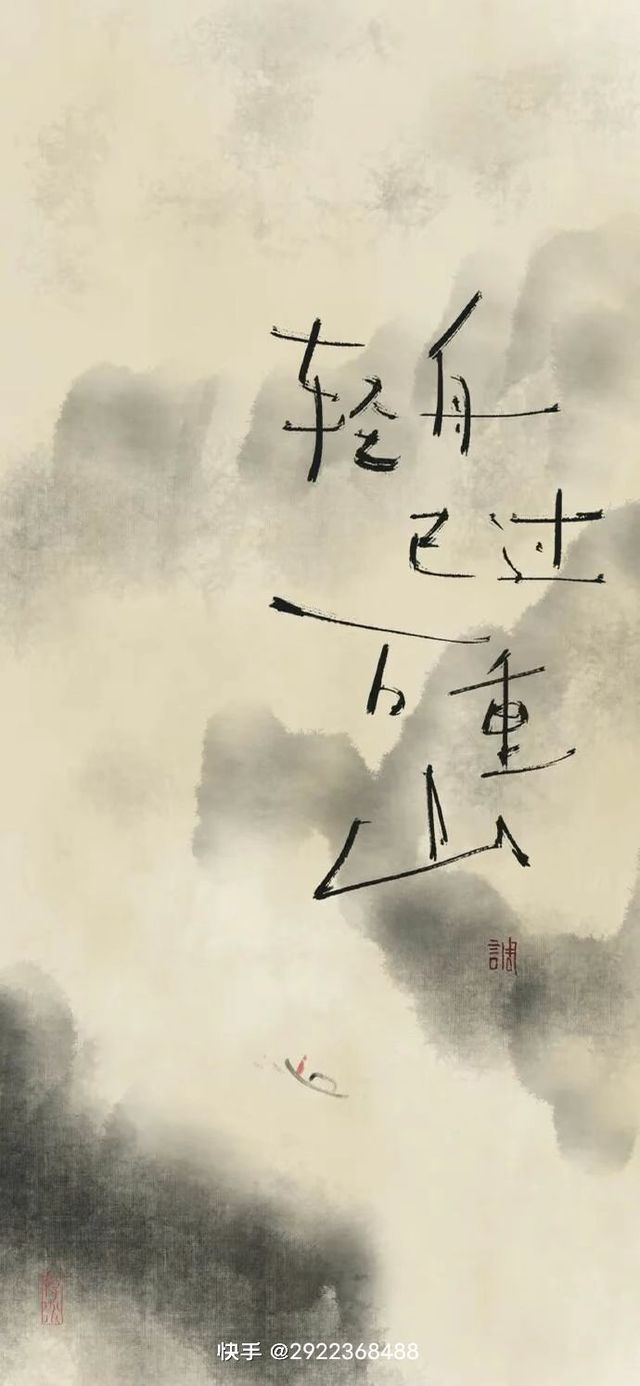 轻舟
已过
百重
山
調
快手 @2922368488